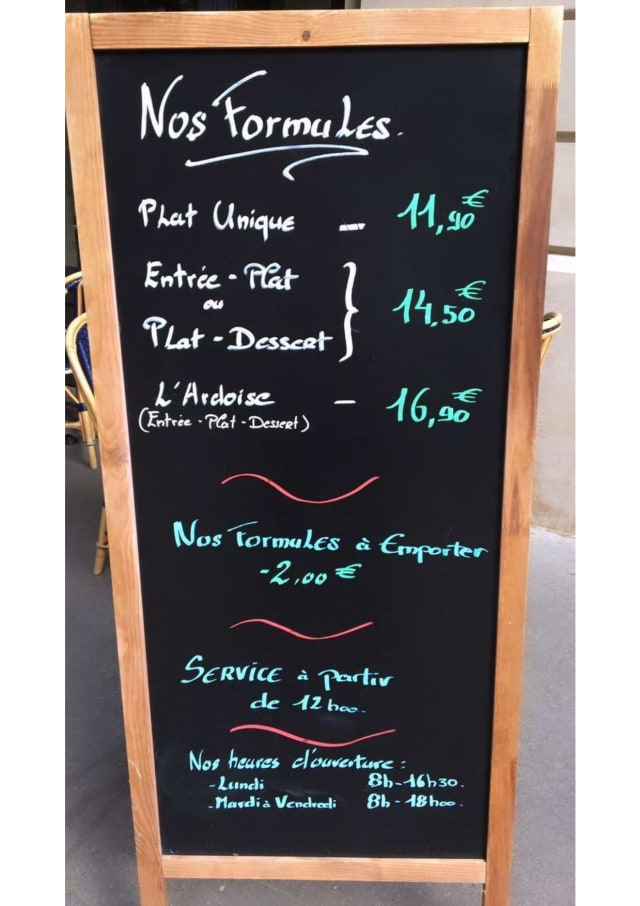 Nos Formules.
Plat Unique - 11,90€
Entrée - Plat
ou
Plat - Dessert } 14,50€
L'Ardoise - 16,90€
(Entrée - Plat - Dessert)
Nos Formules à Emporter
-2,00€
SERVICE à partir
de 12h00.
Nos heures d'ouverture :
- Lundi 8h-16h30.
- Mardi à Vendredi 8h-18h00.